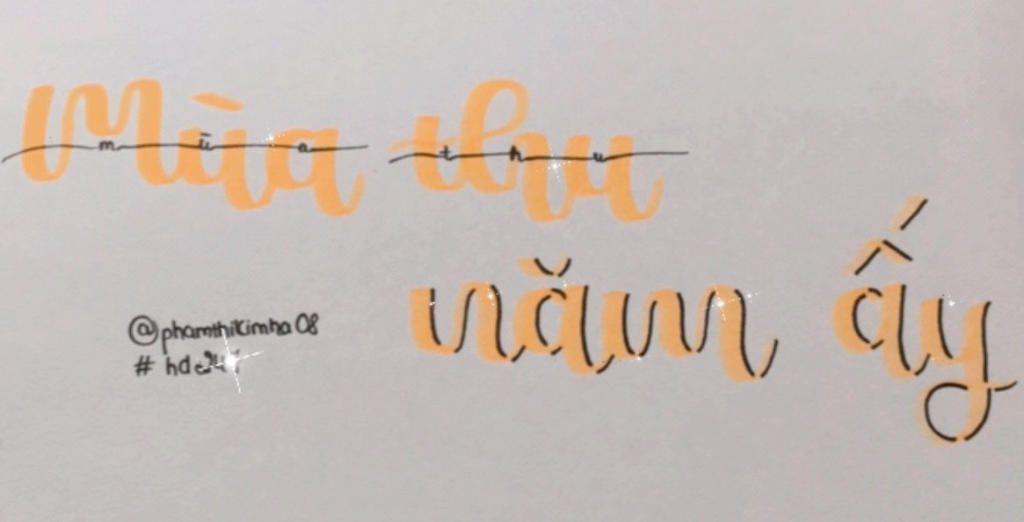 Mùa thu
mùa thu
năm ấy
@phamthikimha08